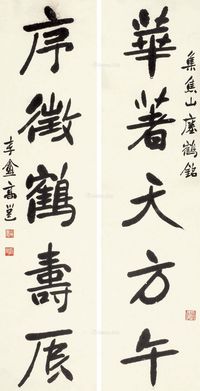 集焦山瘞鶴銘
華著天方午
序徵鶴壽辰
李盦高邕